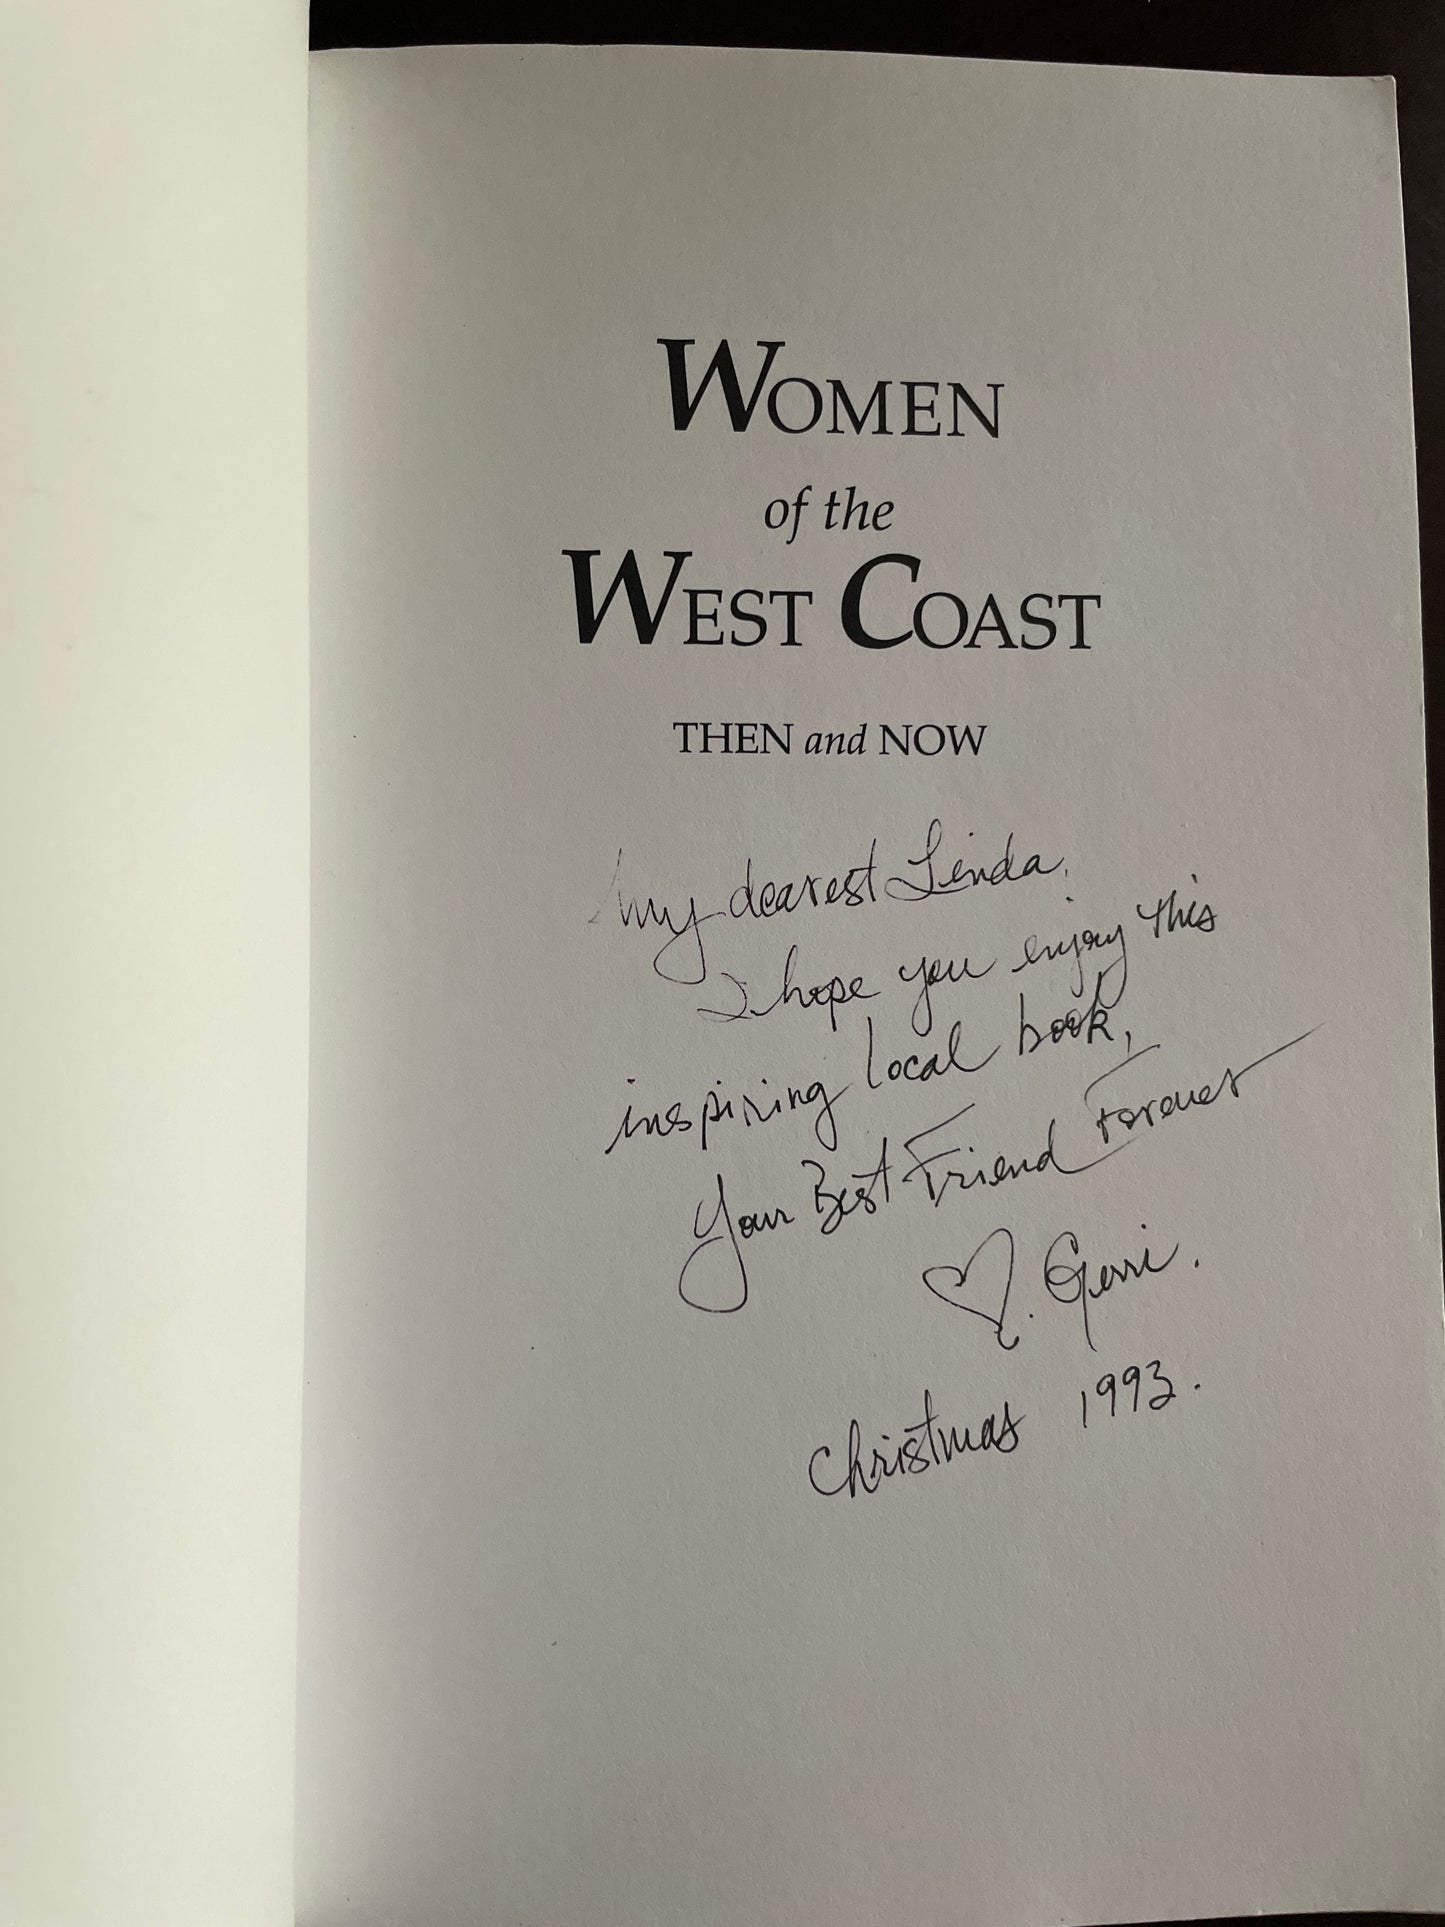 WOMEN
of the
WEST COAST
THEN and NOW
My dearest Linda,
I hope you enjoy this
inspiring local book,
Your Best Friend Forever
♡. Gerri.
Christmas 1993.